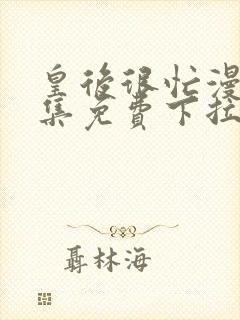 皇後很忙漫
集免費下拉
聶林海